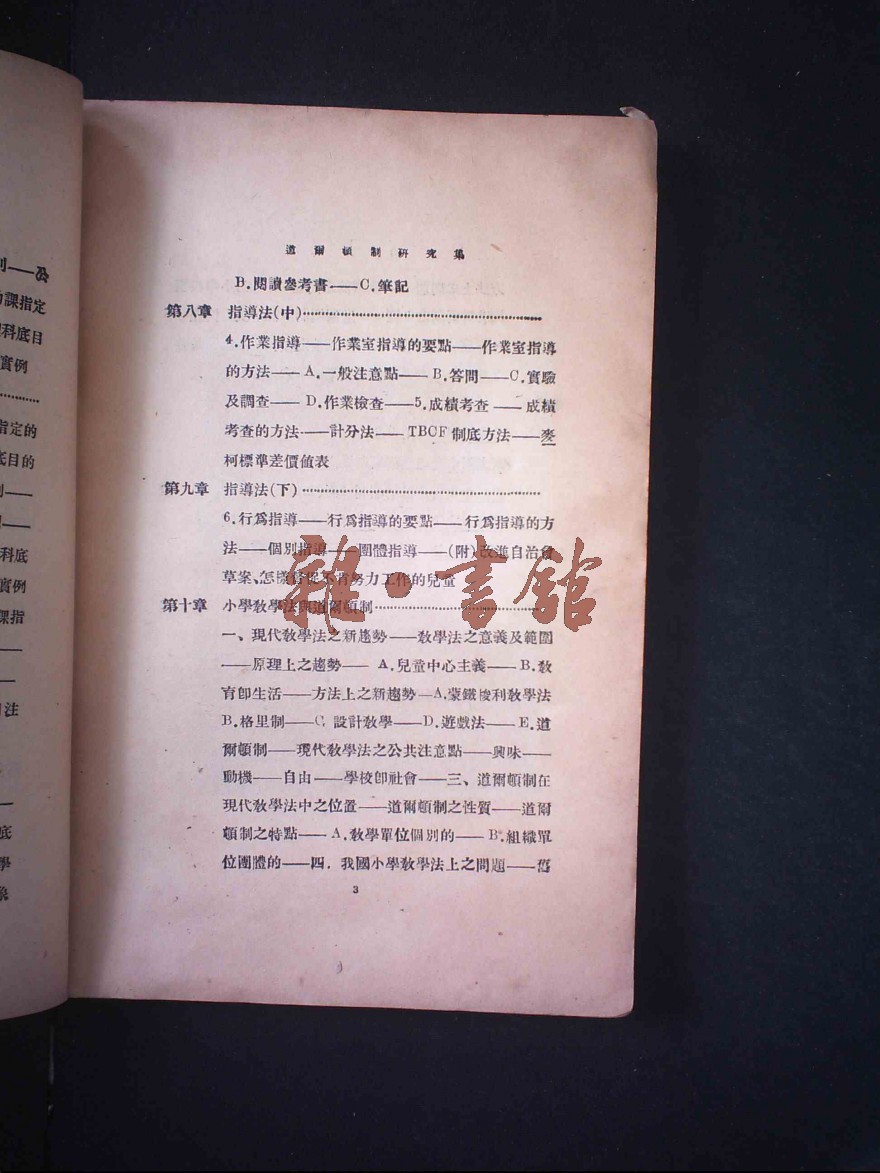 道爾頓制硏究集
B.閱讀參考書——C.筆記
第八章 指導法(中)
4.作業指導——作業室指導的要點——作業室指導
的方法——A.一般注意點——B.答問——C.實驗
及調查——D.作業檢查——5.成績考查——成績
考查的方法——計分法——TBCF制底方法——麥
柯標準差價值表
第九章 指導法(下)
6.行爲指導——行爲指導的要點——行爲指導的方
法——個別指導——團體指導——(附)改進自治會
草案、怎樣督促不肯努力工作的兒童
第十章 小學教學法與道爾頓制
一、現代教學法之新趨勢——教學法之意義及範圍
——原理上之趨勢——A.兒童中心主義——B.教
育卽生活——方法上之新趨勢—A.蒙鐵梭利教學法
B.格里制——C.設計教學——D.遊戲法——E.道
爾頓制——現代教學法之公共注意點——興味——
動機——自由——學校卽社會——三、道爾頓制在
現代教學法中之位置——道爾頓制之性質——道爾
頓制之特點——A.教學單位個別的——B.組織單
位團體的——四.我國小學教學法上之問題——舊
3
雜·書館
課指定
科底目
實例
指定的
底目的
科底
實例
課指
注
底
學